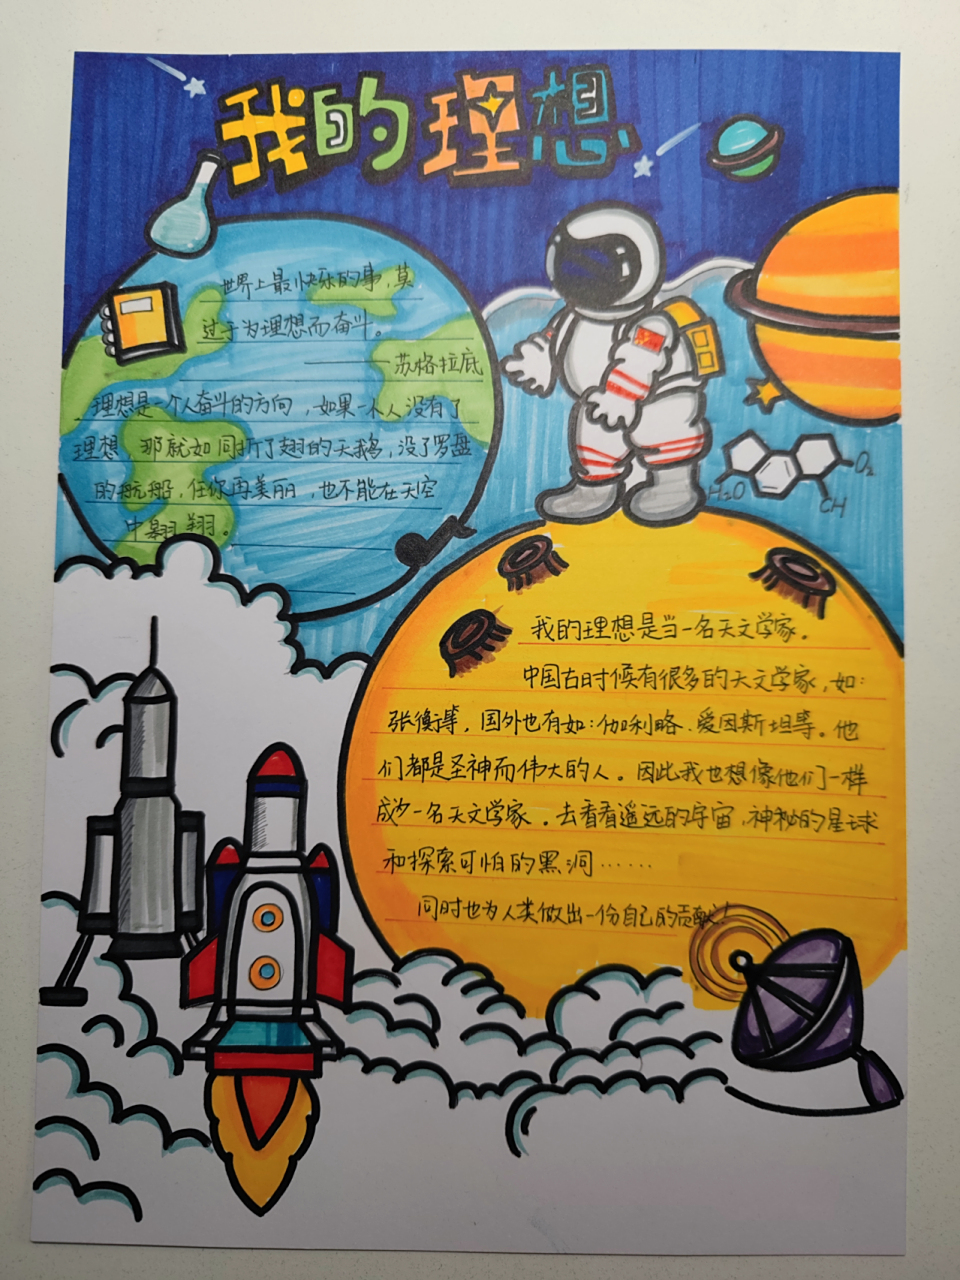 我的理想
世界上最快乐的事,莫
过于为理想而奋斗。
——苏格拉底
理想是一个人奋斗的方向,如果一个人没有了
理想,那就如同折了翅的天鹅,没了罗盘
的航船,任你再美丽,也不能在天空
中翱翔。
H₂O
O₂
CH
我的理想是当一名天文学家。
中国古时候有很多的天文学家,如:
张衡等,国外也有如:伽利略、爱因斯坦等。他
们都是圣神而伟大的人。因此我也想像他们一样
成为一名天文学家。去看看遥远的宇宙,神秘的星球
和探索可怕的黑洞……
同时也为人类做出一份自己的贡献!